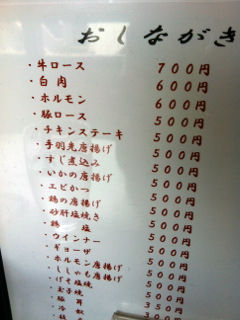 おしながき
・牛ロース 700円
・白肉 600円
・ホルモン 600円
・豚ロース 500円
・チキンステーキ 500円
・手羽先唐揚げ 500円
・すじ煮込み 500円
・いかの唐揚げ 500円
・エビかつ 500円
・鶏の唐揚げ 500円
・砂肝塩焼き 500円
・鶏 塩 500円
・ウインナー 500円
・ギョーザ 500円
・ホルモン唐揚げ 500円
・ししゃも唐揚げ 500円
・げそ塩焼 500円
・玉子焼 500円
・豚耳 350円
・冷奴 300円